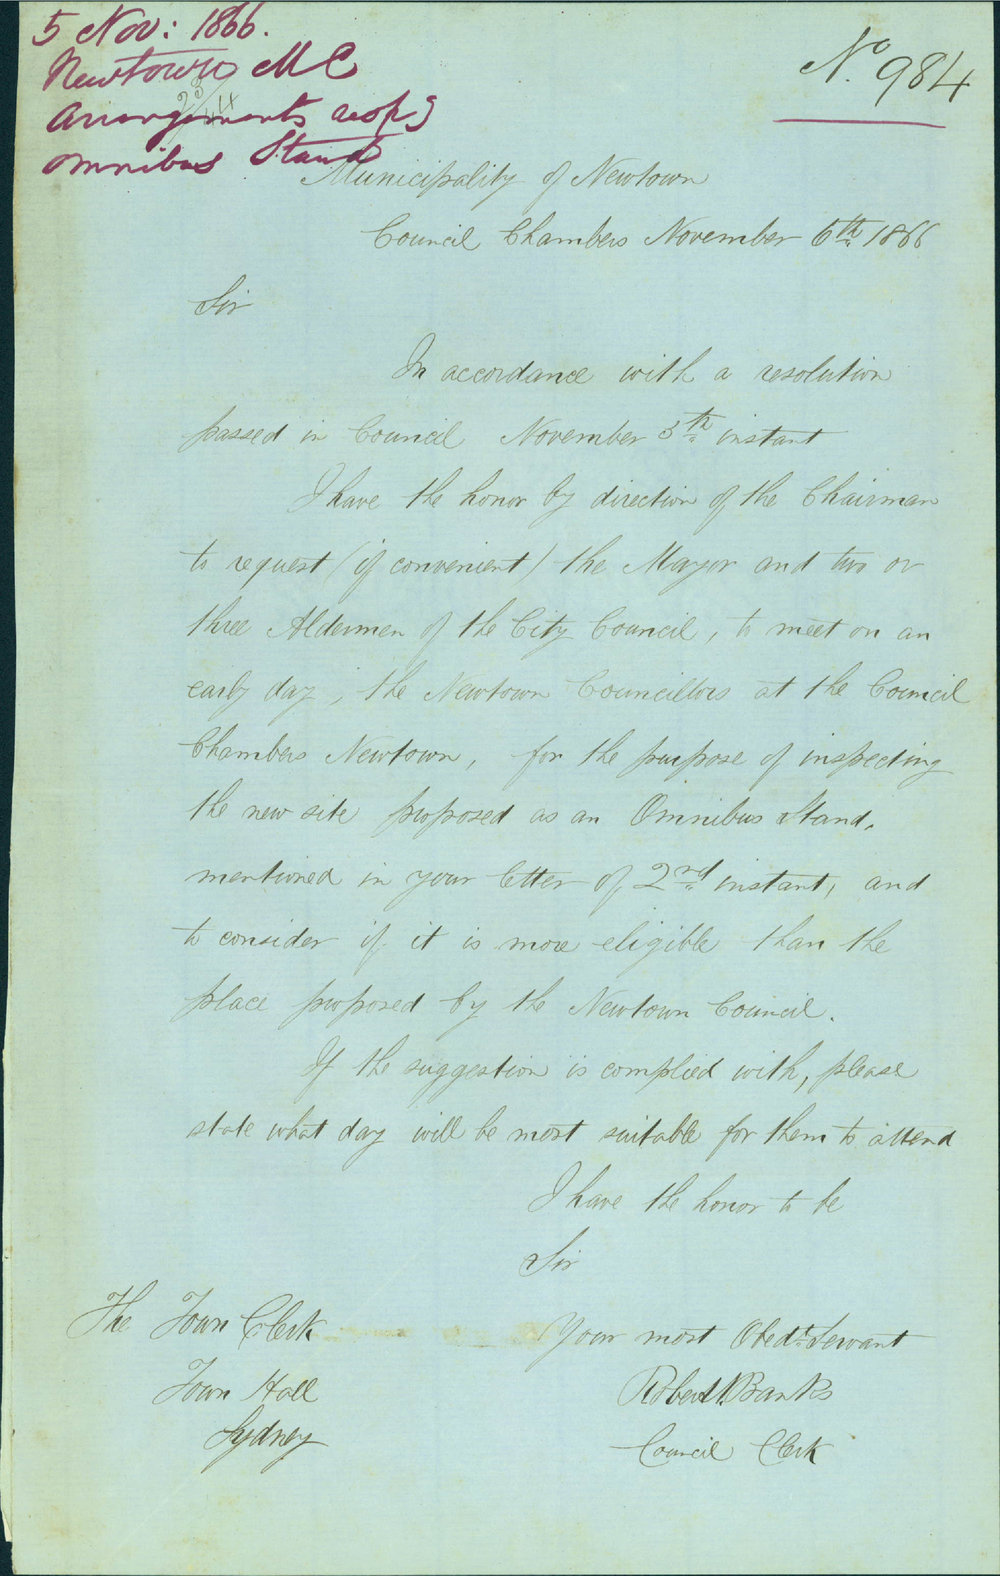 5 Nov: 1866.
Newtown MC
Arrangements resp g
Omnibus Stand
No. 984
Municipality of Newtown
Council Chambers November 6th 1866
Sir
In accordance with a resolution
passed in Council November 5th instant
I have the honor by direction of the Chairman
to request (if convenient) the Mayor and two or
three Aldermen of the City Council, to meet on an
early day, the Newtown Councillors at the Council
Chambers Newtown, for the purpose of inspecting
the new site proposed as an Omnibus Stand,
mentioned in your letter of 2nd instant, and
to consider if it is more eligible than the
place proposed by the Newtown Council.
If the suggestion is complied with, please
state what day will be most suitable for them to attend
I have the honor to be
Sir
Your most Obedt. Servant
Robert Banks
Council Clerk
The Town Clerk
Town Hall
Sydney